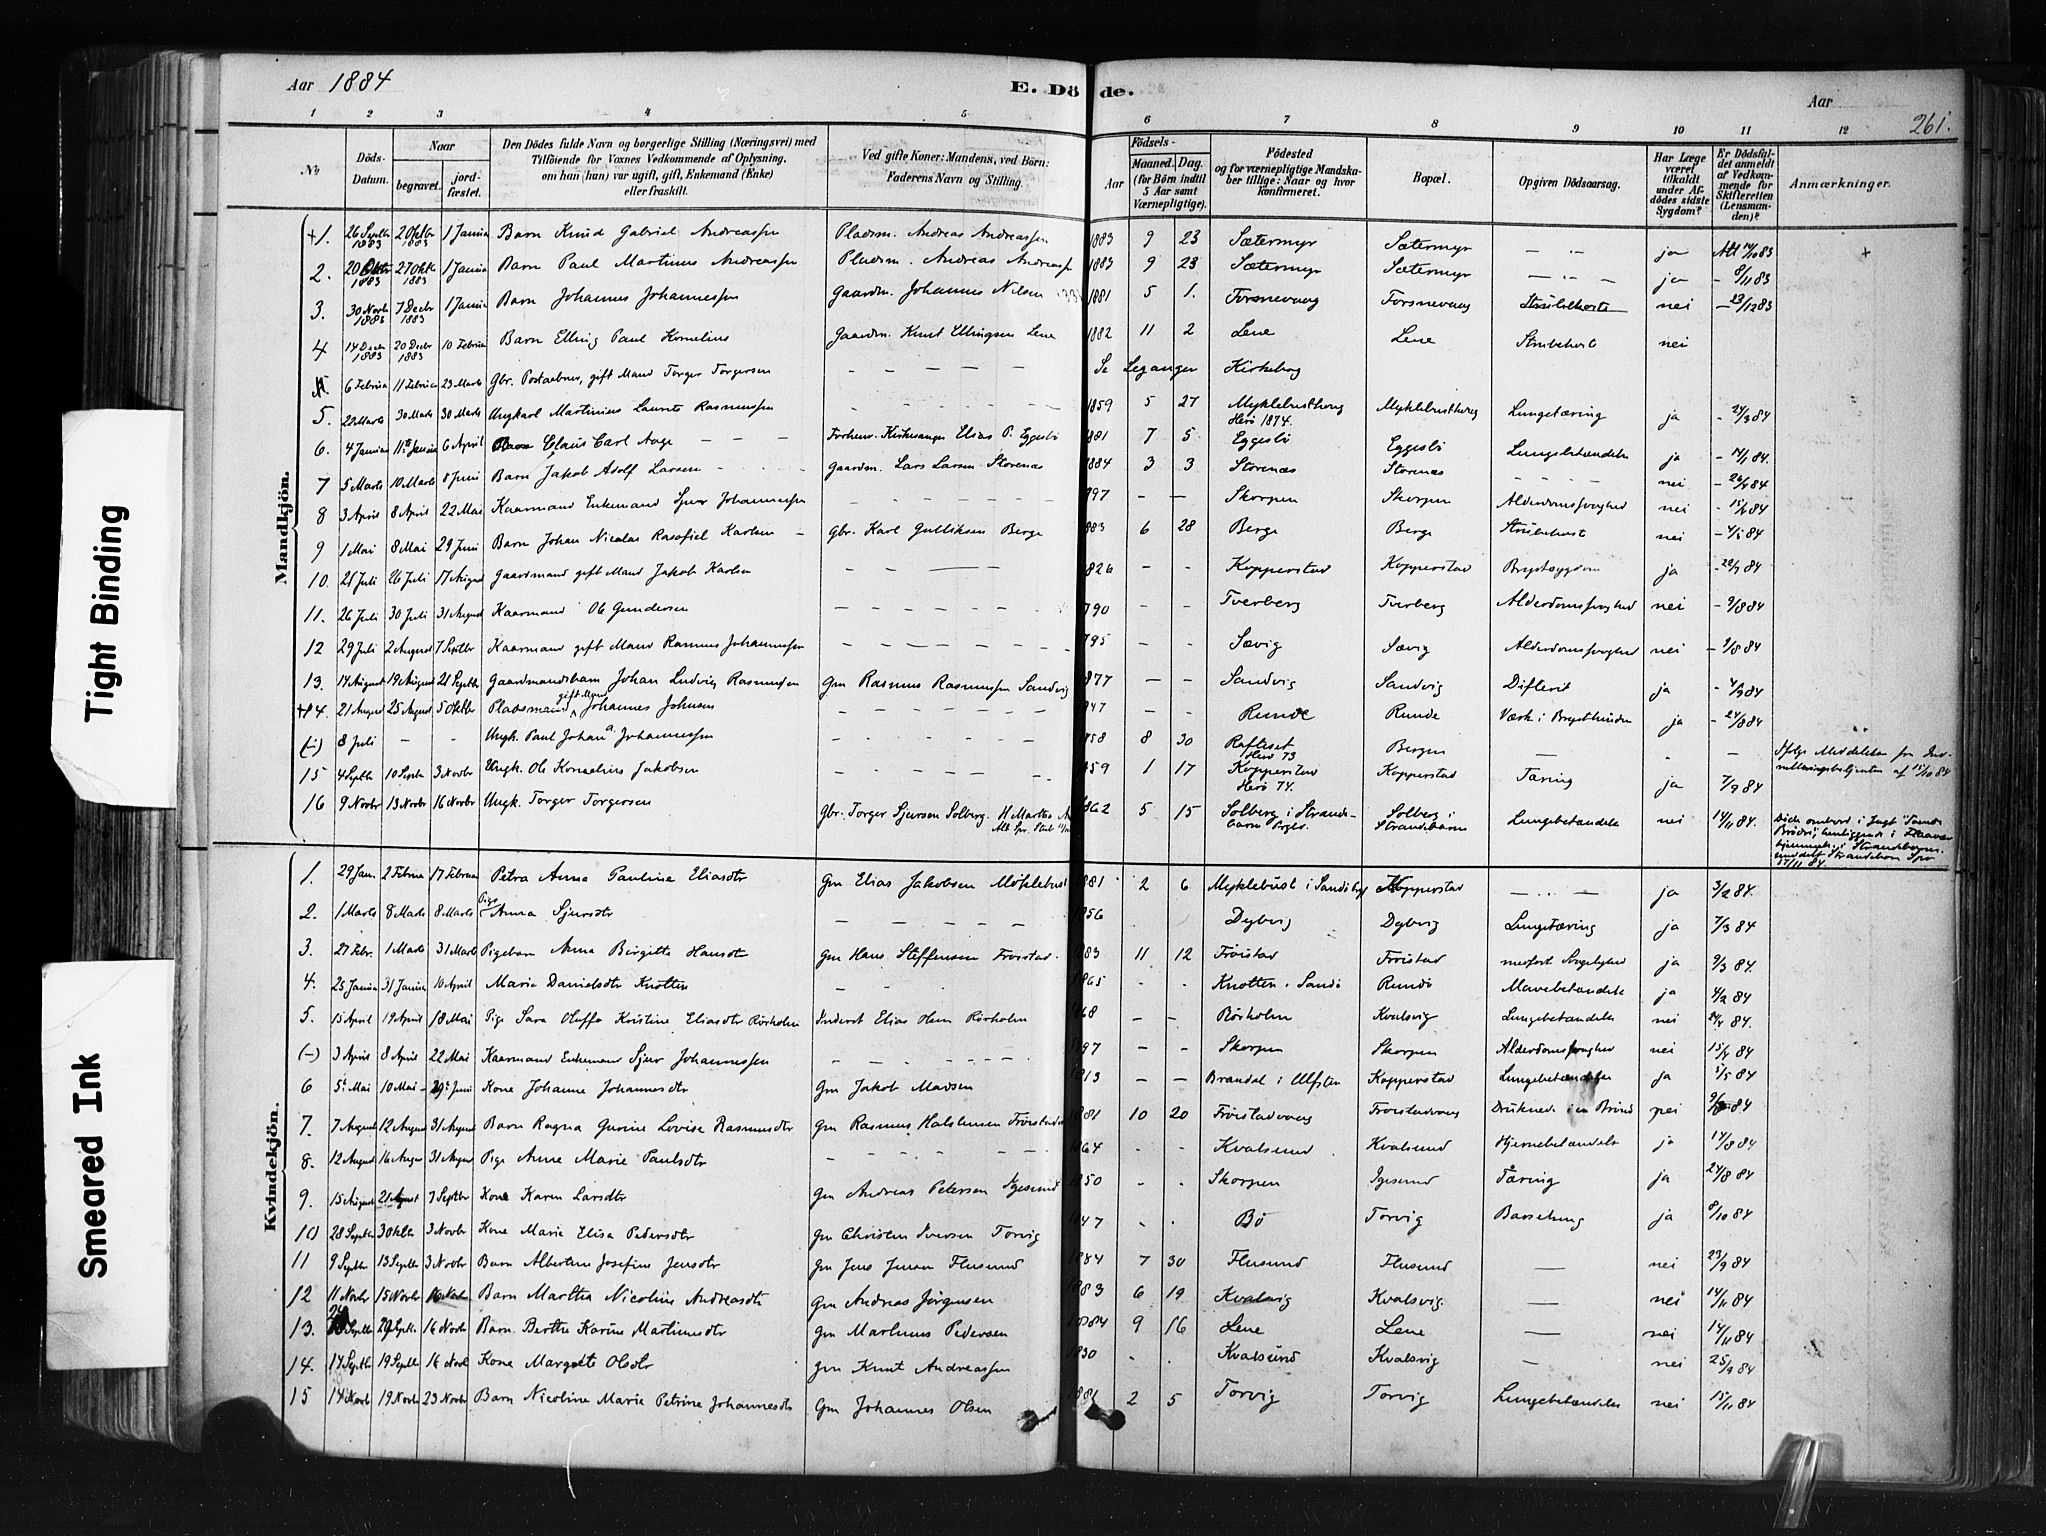 Aar 1884
E. Döde.
Aar
261.
1 2 3 4 5 6 7 8 9 10 11 12
No
Döds-Datum.
Naar
begravet.
jord-fæstet.
Den Dödes fulde Navn og borgerlige Stilling (Næringsvei) med
Tilföiende for Voxnes Vedkommende af Oplysning,
om han (hun) var ugift, gift, Enkemand (Enke)
eller fraskilt.
Ved gifte Koner: Mandens, ved Börn:
Faderens Navn og Stilling.
Födsels-
Aar
Maaned.
Dag.
(for Börn indtil
5 Aar samt
Værnepligtige).
Födested
og for værnepligtige Mandska-
ber tillige: Naar og hvor
konfirmeret.
Bopæl.
Opgiven Dödsaarsag.
Har Læge
været
tilkaldt
under Af-
dödes sidste
Sygdom?
Er Dödsfal-
det anmeldt
af Vedkom-
mende for
Skifteretten
(Lensman-
den)?
Anmærkninger.
Mandkjön.
+1. 26 Septbr 1883 2 Oktbr 1883 1 Januar Barn Knud Gabriel Andreassen Pladsm. Andreas Andreassen 1883 9 23 Sætermyr Sætermyr — " — ja Att 14/10 83 +
2. 20 Oktbr 1883 27 Oktbr 1883 1 Januar Barn Paul Martinus Andreassen Pladsm. Andreas Andreassen 1883 9 23 Sætermyr Sætermyr — " — ja - 8/11 83
3. 30 Novbr 1883 7 Decbr 1883 1 Januar Barn Johannes Johannessen Gaardm. Johannes Nilsen 1881 5 1. Torsnevaag Torsnevaag Strubehoste nei - 23/12 83
4 14 Decbr 1883 20 Decbr 1883 10 Februar Barn Elling Paul Kornelius Gaardm. Knut Ellingsen Lene 1882 11 2 Lene Lene Strubehost nei
6 Februar 11 Februar 23 Marts Gbr. Postaabner, gift Mand Torger Torgersen — — — — Se Leganger Kirkebog
5. 22 Marts 30 Marts 30 Marts Ungkarl Martinius Laurits Rasmussen 1859 5 27 Myklebusthaug Herö 1874. Myklebusthaug Lungetæring ja - 24/3 84
6. 4 Januar 11te Januar 6 April Barn Claus Carl Aage — — — Forhenv. Kirkesanger Elias P. Eggesbö 1881 7 5 Eggesbö Eggesbö Lungebetændelse ja - 14/1 84.
7 5 Marts 10 Marts 8 Juni Barn Jakob Adolf Larsen Gaardm. Lars Larsen Storenæs 1884 3 3 Storenæs Storenæs nei - 26/4 84
8 3 April 8 April 22 Mai Kaarmand Enkemand Sjur Johannessen 1797 — — Skorpen Skorpen Alderdomssvaghed nei - 15/4 84
9 1 Mai 8 Mai 29 Juni Barn Johan Nicolas Rasafiel Karlsen Gbr. Karl Gulliksen Berge 1883 6 28 Berge Berge Strubehost nei - 4/5 84
10. 25 Juli 26 Juli 17 August Gaardmand gift Mand Jakob Karlsen 1826 - - Kopperstad Kopperstad Brystsygdom ja - 22/7 84
11. 26 Juli 30 Juli 31 August Kaarmand Ole Gundersen 1790 - - Tverberg Tverberg Alderdomssvaghed nei - 9/8 84
12 29 Juli 2 August 7 Septbr Kaarmand gift Mand Rasmus Johannessen 1795 - - Sævig Sævig Alderdomssvaghed nei - 9/8 84
13. 14 August 19 August 21 Septbr Gaardmandsbarn Johan Ludvig Rasmussen Gm Rasmus Rasmussen Sandvig 1877 — — Sandvig Sandvig Difterit ja - 4/9 84
+14. 21 August 25 August 5 Oktbr Pladsmand gift Mand Johannes Johnsen 1847 - - Runde Runde Værk i Brysthinden ja - 24/8 84
(-) 8 Juli - - Ungk. Paul Johan Johannessen 1858 8 30 Rafteset Herö 73 Bergen — — Ifölge Meddelelse fra Ind-
rulleringsbetjenten af 15/10 84
15 4 Septbr 10 Septbr 3 Novbr Ungk. Ole Kornelius Jakobsen 1859 1 17 Kopperstad Herö 74. Kopperstad Tæring ja 7/9 84
16 9 Novbr 13 Novbr 16 Novbr Ungk. Torger Torgersen Gbr. Torger Sjursen Solberg. 1862 5 15 Solberg i Strande-
barn Prgld. Solberg i Strandebarm Lungebetændelse nei 14/11 84. Döde ombord i Jagt "Tvende
Brödre", henliggende i Flaavær
Kvindekjön.
1. 29 Jan. 2 Februar 17 Februar Petra Anna Pauline Eliasdtr Gm Elias Jakobsen Möklebust 1881 2 6 Myklebust i Sandö Kopperstad — — ja 3/2 84.
2. 1 Marts 8 Marts 8 Marts Pige Anna Sjursdtr 1856 Dybvig Dybvig Lungetæring ja 7/3 84
3. 27 Febr. 1 Marts 31 Marts Pigebarn Anna Birgitta Hansdtr Gm Hans Steffensen Fröistad 1883 11 12 Fröistad Fröistad medfödt Svaghed ja 9/3 84.
4. 25 Januar 31 Januar 10 April Marie Danielsdtr Knotten 1865 - - Knotten i Sandö Rundö Mavebetændelse ja 4/2 84
5. 15 April 19 April 18 Mai Pige Sara Oluffa Kristine Eliasdtr Rörholm Inderst Elias Hans Rörholm 1868 — — Rörholmen Kvalsvig Lungebetændelse nei 24/4 84.
(-) 3 April 8 April 22 Mai Kaarmand Enkemand Sjur Johannessen 1797 - - Skorpen Skorpen Alderdomssvaghed nei 15/4 84
6 5te Mai 10 Mai 29de Juni Kone Johanne Johannesdtr Gm Jakob Madsen 1813 — — Brandal i Ulfsten Kopperstad Lungebetændelse ja 5/5 84
7. 7 August 12 August 31 August Barn Ragna Gurine Lovise Rasmusdtr Gm Rasmus Halstensen Fröistad 1881 10 20 Fröistadvaag Fröistadvaag Druknede i en Brönd nei 9/8 84
8. 12 August 16 August 31 August Pige Anne Marie Paulsdtr 1864 - - Kvalsund Kvalsund Hjernebetændelse ja 14/8 84
9. 15 August 21 August 7 Septbr Kone Karen Larsdtr Gm Andreas Petersen Igesund 1850 - - Skorpen Igesund Tæring ja 24/8 84
10 28 Septbr 3 Oktbr 3 Novbr Kone Marie Elisa Pedersdtr Gm Christen Iversen Torvig 1847 - - Bö Torvig Barselseng ja 8/10 84
11 9 Septbr 13 Septbr 3 Novbr Barn Albertine Josefine Jensdtr Gm Jens Jensen Flusund 1884 7 30 Flusund Flusund — nei 23/9 84
12 11 Novbr 15 Novbr 16 Novbr Barn Martha Nicoline Andreasdtr Gm Andreas Jörgensen 1883 6 19 Kvalsvig Kvalsvig. — nei 14/11 84
13. Septbr 29 Septbr 16 Novbr Barn Berthe Karine Martinusdtr Gm Martinus Pedersen 1884 9 16 Lene Lene — nei 14/11 84
14. 14 Septbr 19 Septbr 16 Novb Kone Margrete Olsdtr Gm Knut Andreassen 1830 - - Kvalsund Kvalsvig — nei 25/9 84
15 14 Novbr 19 Novbr 23 Novbr Barn Nicoline Marie Petrine Johannesdtr Gm Johannes Olsen 1881 2 5 Torvig Torvig Lungebetændelse nei 15/11 84
Tight Binding
Smeared Ink